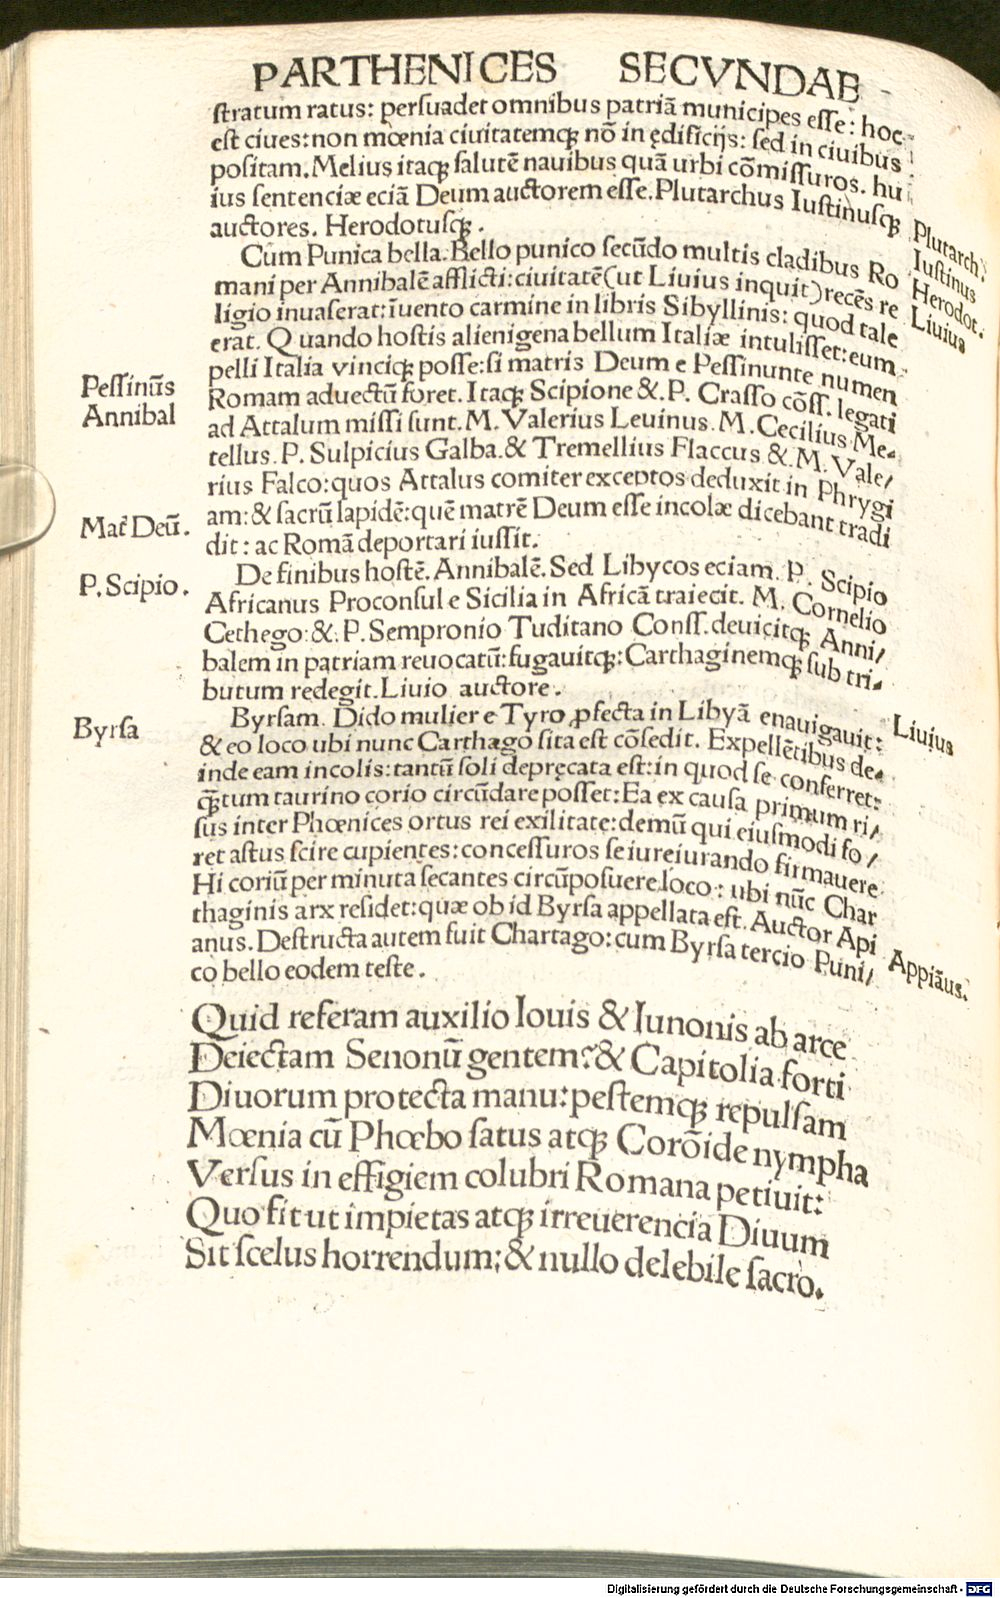 PARTHENICES SECVNDAE
ſtratum ratus: perſuadet omnibus patriā municipes eſſe: hoc
eſt ciues: non mœnia ciuitatemqꝫ nō in ędificijs: ſed in ciuibus
poſitam. Melius itaqꝫ ſalutē nauibus quā urbi cōmiſſuros. hu
ius ſentenciæ eciā Deum auctorem eſſe. Plutarchus Iuſtinuſqꝫ
auctores. Herodotuſqꝫ.
Plutarch?
Iuſtinus
Herodot.
Cum Punica bella. Bello punico ſecūdo multis cladibus Ro
mani per Annibalē afflicti: ciuitatē (ut Liuius inquit) recēs re
Liuius
ligio inuaſerat: īuento carmine in libris Sibyllinis: quod tale
erat. Quando hoſtis alienigena bellum Italiæ intuliſſet: eum
pelli Italia vinciqꝫ poſſe: ſi matris Deum e Peſſinunte numen
Peſſinūs
Romam aduectū foret. Itaqꝫ Scipione &. P. Craſſo cōſſ. legati
Annibal
ad Attalum miſſi ſunt. M. Valerius Leuinus. M. Cecilius Me-
tellus. P. Sulpicius Galba. & Tremellius Flaccus &. M. Vale/
rius Falco: quos Attalus comiter exceptos deduxit in Phrygi
am: & ſacrū lapidē: quē matrē Deum eſſe incolæ dicebant tradi
Mat̄ Deū.
dit: ac Romā deportari iuſſit.
De finibus hoſtē. Annibalē. Sed Libycos eciam. P. Scipio
P. Scipio.
Africanus Proconſul e Sicilia in Africā traiecit. M. Cornelio
Cethego: &. P. Sempronio Tuditano Conſſ. deuicitqꝫ Anni/
balem in patriam reuocatū: fugauitqꝫ: Carthaginemqꝫ ſub tri-
butum redegit. Liuio auctore.
Liuius
Byrſam. Dido mulier e Tyro ꝓfecta in Libyā enauigauit:
Byrſa
& eo loco ubi nunc Carthago ſita eſt cōſedit. Expellētibus de-
inde eam incolis: tantū ſoli depręcata eſt: in quod ſe conferret:
qꝫtum taurino corio circūdare poſſet: Ea ex cauſa primum ri/
ſus inter Phœnices ortus rei exilitate: demū qui eiuſmodi fo/
ret aſtus ſcire cupientes: conceſſuros ſe iureiurando firmauere
Hi coriū per minuta ſecantes circūpoſuere loco: ubi nūc Char
thaginis arx reſidet: quæ ob id Byrſa appellata eſt. Auctor Api
anus. Deſtructa autem fuit Chartago: cum Byrſa tercio Puni/
Appiāus.
co bello eodem teſte.
Quid referam auxilio Iouis & Iunonis ab arce
Deiectam Senonū gentem? & Capitolia forti
Diuorum protecta manu: peſtemqꝫ repulſam
Mœnia cū Phœbo ſatus atqꝫ Corōide nympha
Verſus in effigiem colubri Romana petiuit:
Quo fit ut impietas atqꝫ irreuerencia Diuum
Sit ſcelus horrendum; & nullo delebile ſacro.
Digitalisierung gefördert durch die Deutsche Forschungsgemeinschaft - DFG